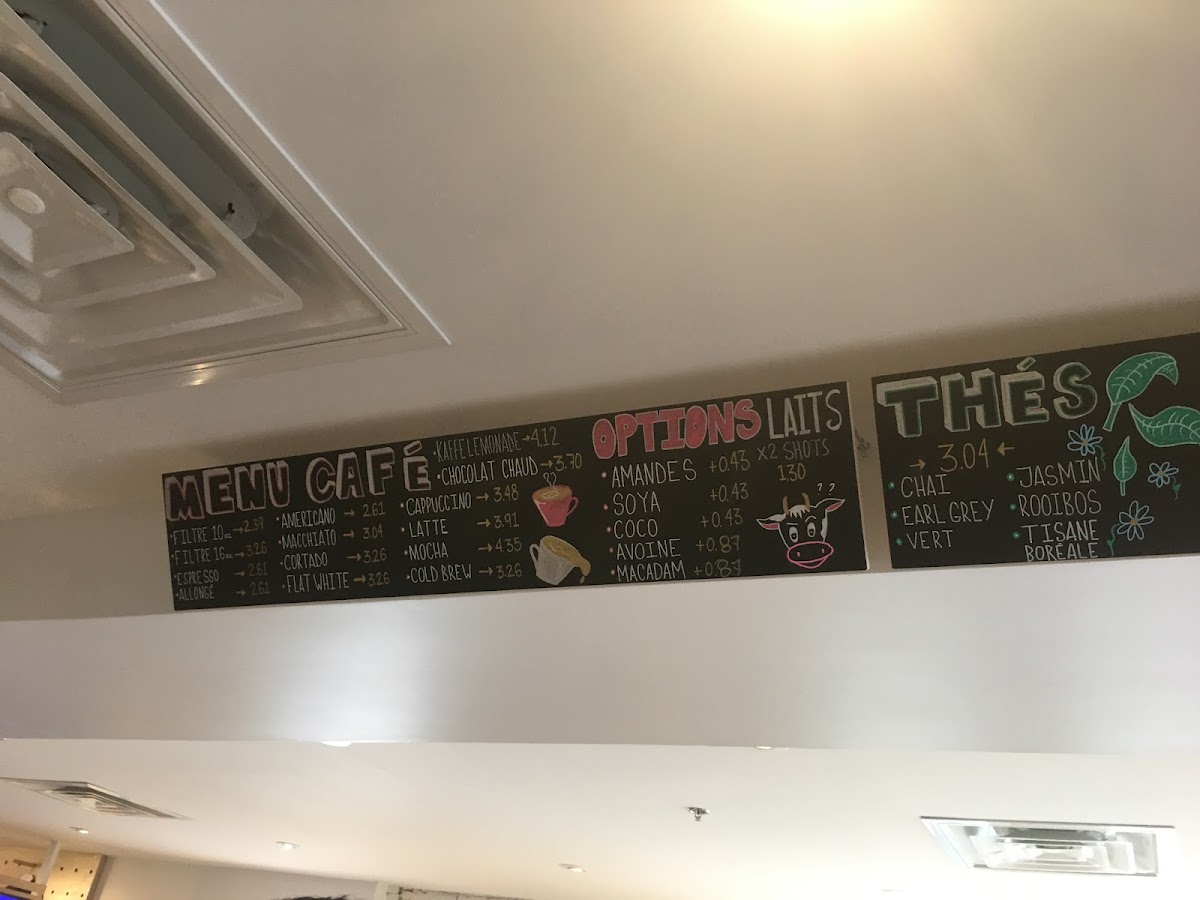 MENU CAFÉ
• FILTRE 10oz → 2.39
• FILTRE 16oz → 3.26
• ESPRESSO → 2.61
• ALLONGÉ → 2.61
• AMERICANO → 2.61
• MACCHIATO → 3.04
• CORTADO → 3.26
• FLAT WHITE → 3.26
• KAFFELEMONADE → 4.12
• CHOCOLAT CHAUD → 3.70
• CAPPUCCINO → 3.48
• LATTE → 3.91
• MOCHA → 4.35
• COLD BREW → 3.26
OPTIONS LAITS
• AMANDES +0.43
• SOYA +0.43
• COCO +0.43
• AVOINE +0.87
• MACADAM +0.87
X2 SHOTS
1.30
??
THÉS
→ 3.04 ←
• CHAI
• EARL GREY
• VERT
• JASMIN
• ROOIBOS
• TISANE
BORÉALE